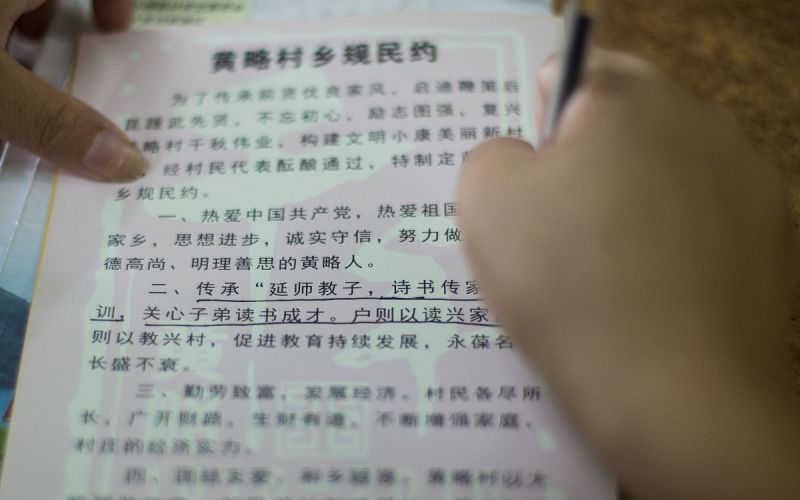 黄略村乡规民约
为了传承前贤优良家风，启迪鞭策后
昆踵武先贤，不忘初心，励志图强，复兴
略村千秋伟业，构建文明小康美丽新村
，经村民代表酝酿通过，特制定
乡规民约。
一、热爱中国共产党，热爱祖国
家乡，思想进步，诚实守信，努力做
德高尚、明理善思的黄略人。
二、传承“延师教子，诗书传家
训，关心子弟读书成才。户则以读兴家
则以教兴村，促进教育持续发展，永葆名
长盛不衰。
三、勤劳致富，发展经济。村民各尽所
长，广开财路，生财有道，不断增强家庭、
村庄的经济实力。
四、团结友爱，和乡睦寨。黄略村以大